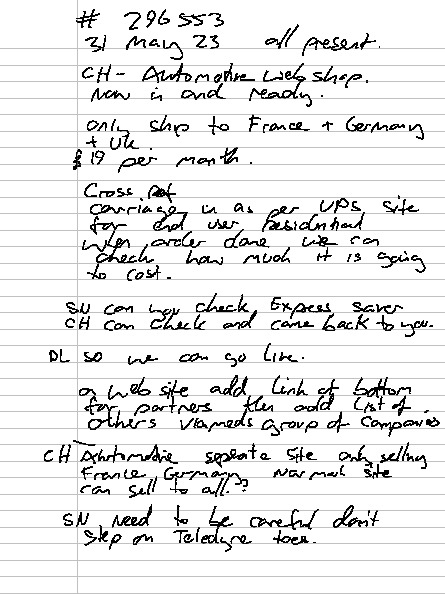 # 296553
31 May 23 all present.
CH - Automotive web shop.
Now in and ready.
only ship to France + Germany
+ UK.
$19 per month.
Cross Ref
carriage in as per UPS site
for end user residential
when order done we can
check how much it is going
to cost.
SN can you check Express saver
CH can check and come back to you.
DL so we can go live.
on web site add link at bottom
for partners then add list of
others group of companies
CH Automotive seperate site only selling
France, Germany Normal site
can sell to all.?
SN need to be careful don't
step on Teledyne toes.